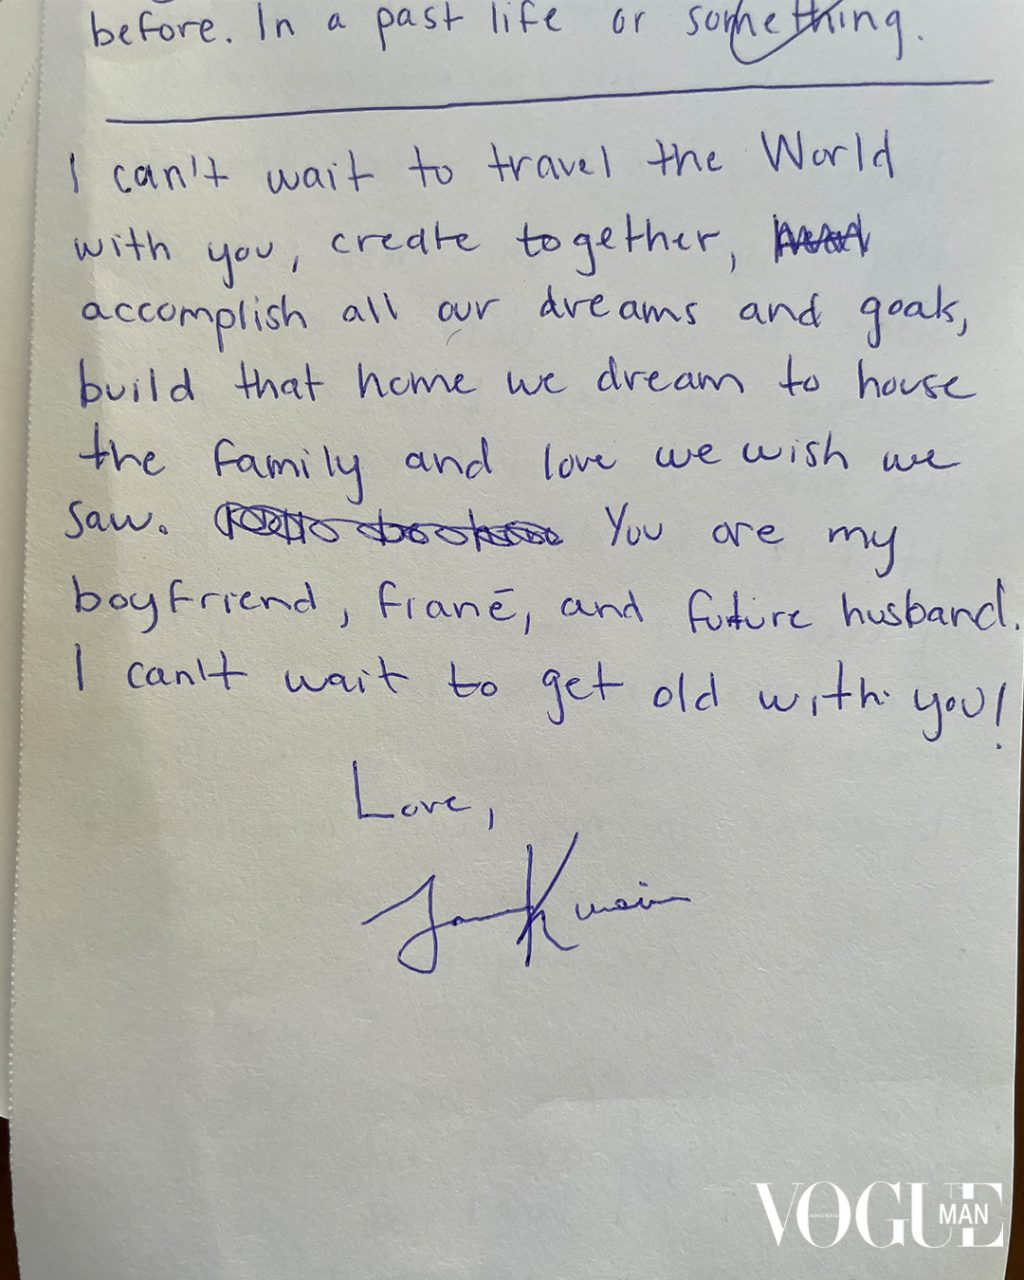 before. In a past life or something.
I can't wait to travel the World
with you, create together,
accomplish all our dreams and goals,
build that home we dream to house
the family and love we wish we
saw. You are my
boyfriend, fiané, and future husband.
I can't wait to get old with you!
Love,
VOGUE
MAN